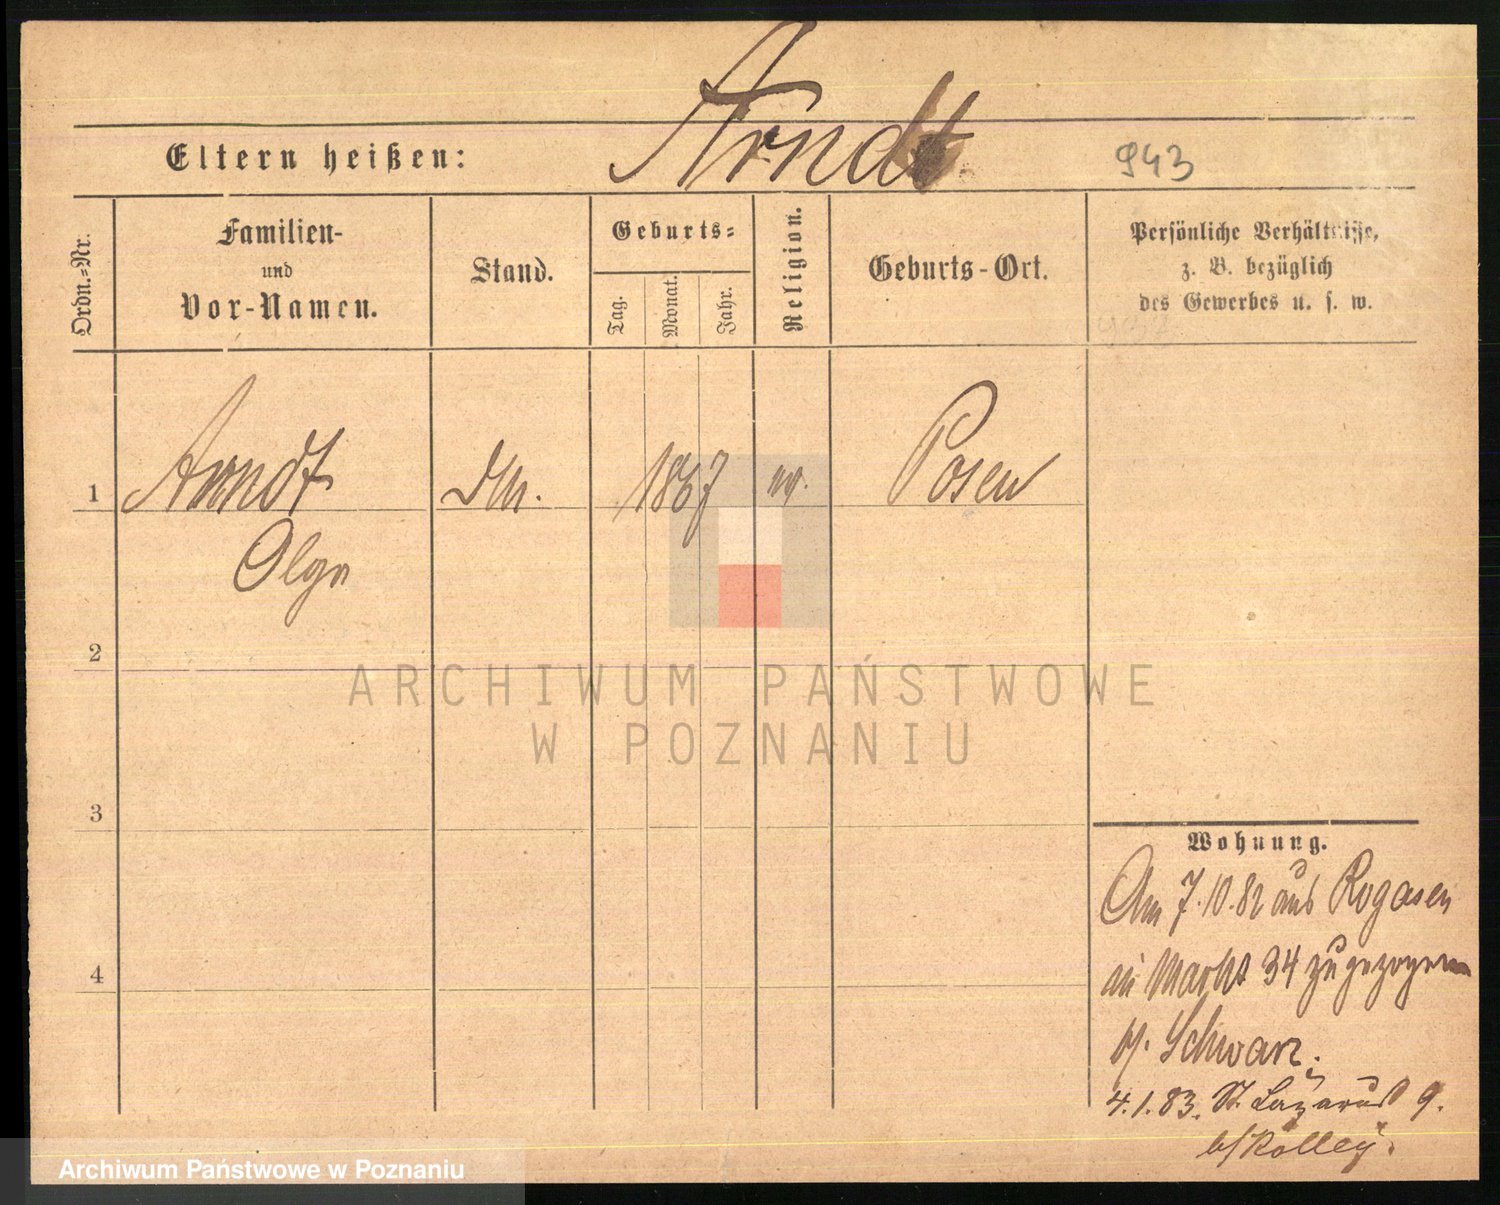 Arndt
Eltern heißen:
943
Ordn.-Nr.
Familien-
und
Vor-Namen.
Stand.
Geburts-
Tag.
Monat.
Jahr.
Religion.
Geburts-Ort.
Persönliche Verhältnisse,
z. B. bezüglich
des Gewerbes u. s. w.
1
Arndt
1867
ev.
Posen
Olga
2
ARCHIWUM PAŃSTWOWE
W POZNANIU
3
Wohnung.
Am 7.10.82 aus Rogasen
Markt 34 zugezogen
4
b/. Schwarz.
4.1.83. St. Lazarus 9.
b/
Archiwum Państwowe w Poznaniu